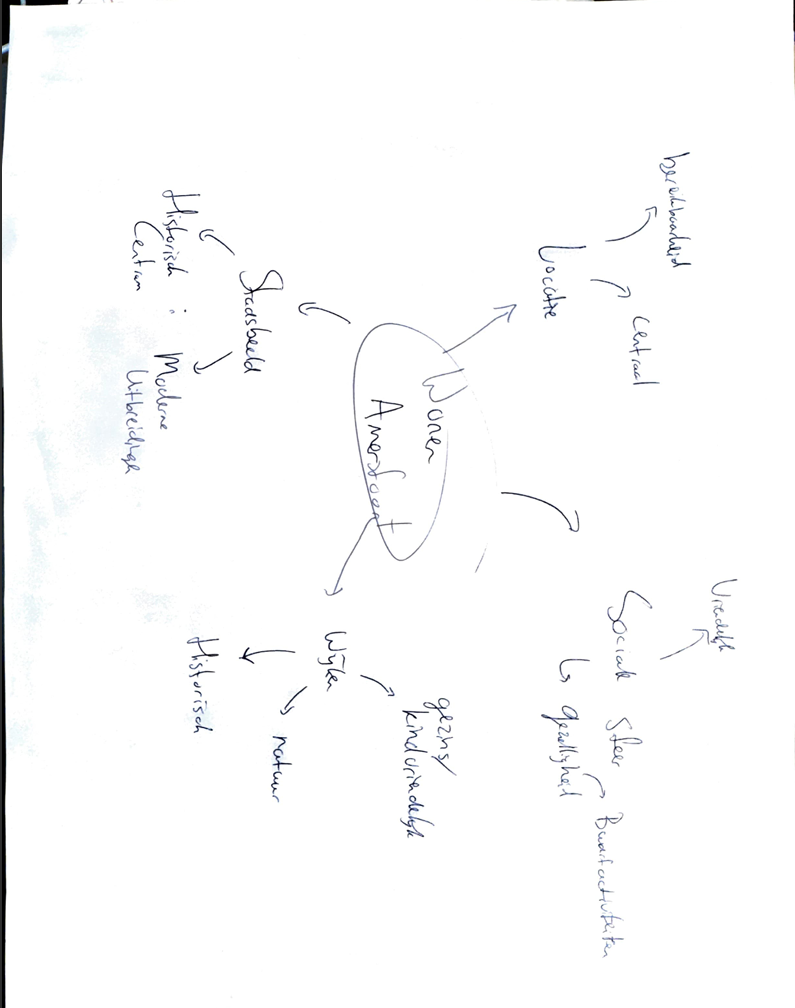 bereikbaarheid
Centraal
Locatie
Vriendelijk
Sociale sfeer
↳ gezelligheid
Buurtactiviteiten
Wonen
Amersfoort
Stadsbeeld
Historisch :
Centrum
Moderne
Uitbreiding
Wijken
gezins/
kindvriendelijk
natuur
Historisch